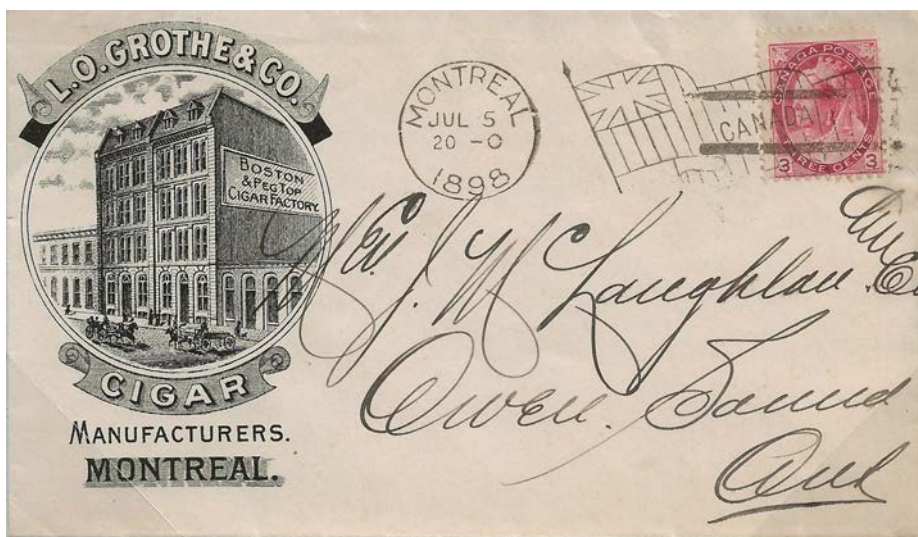 L.O. GROTHE & CO.
BOSTON
& PEG TOP
CIGAR FACTORY.
CIGAR
MANUFACTURERS.
MONTREAL.
MONTREAL
JUL 5
20 - 0
1898
CANADA
CANADA POSTAGE
3 THREE CENTS 3
J. McLaughlan
Owen Sound
Ont